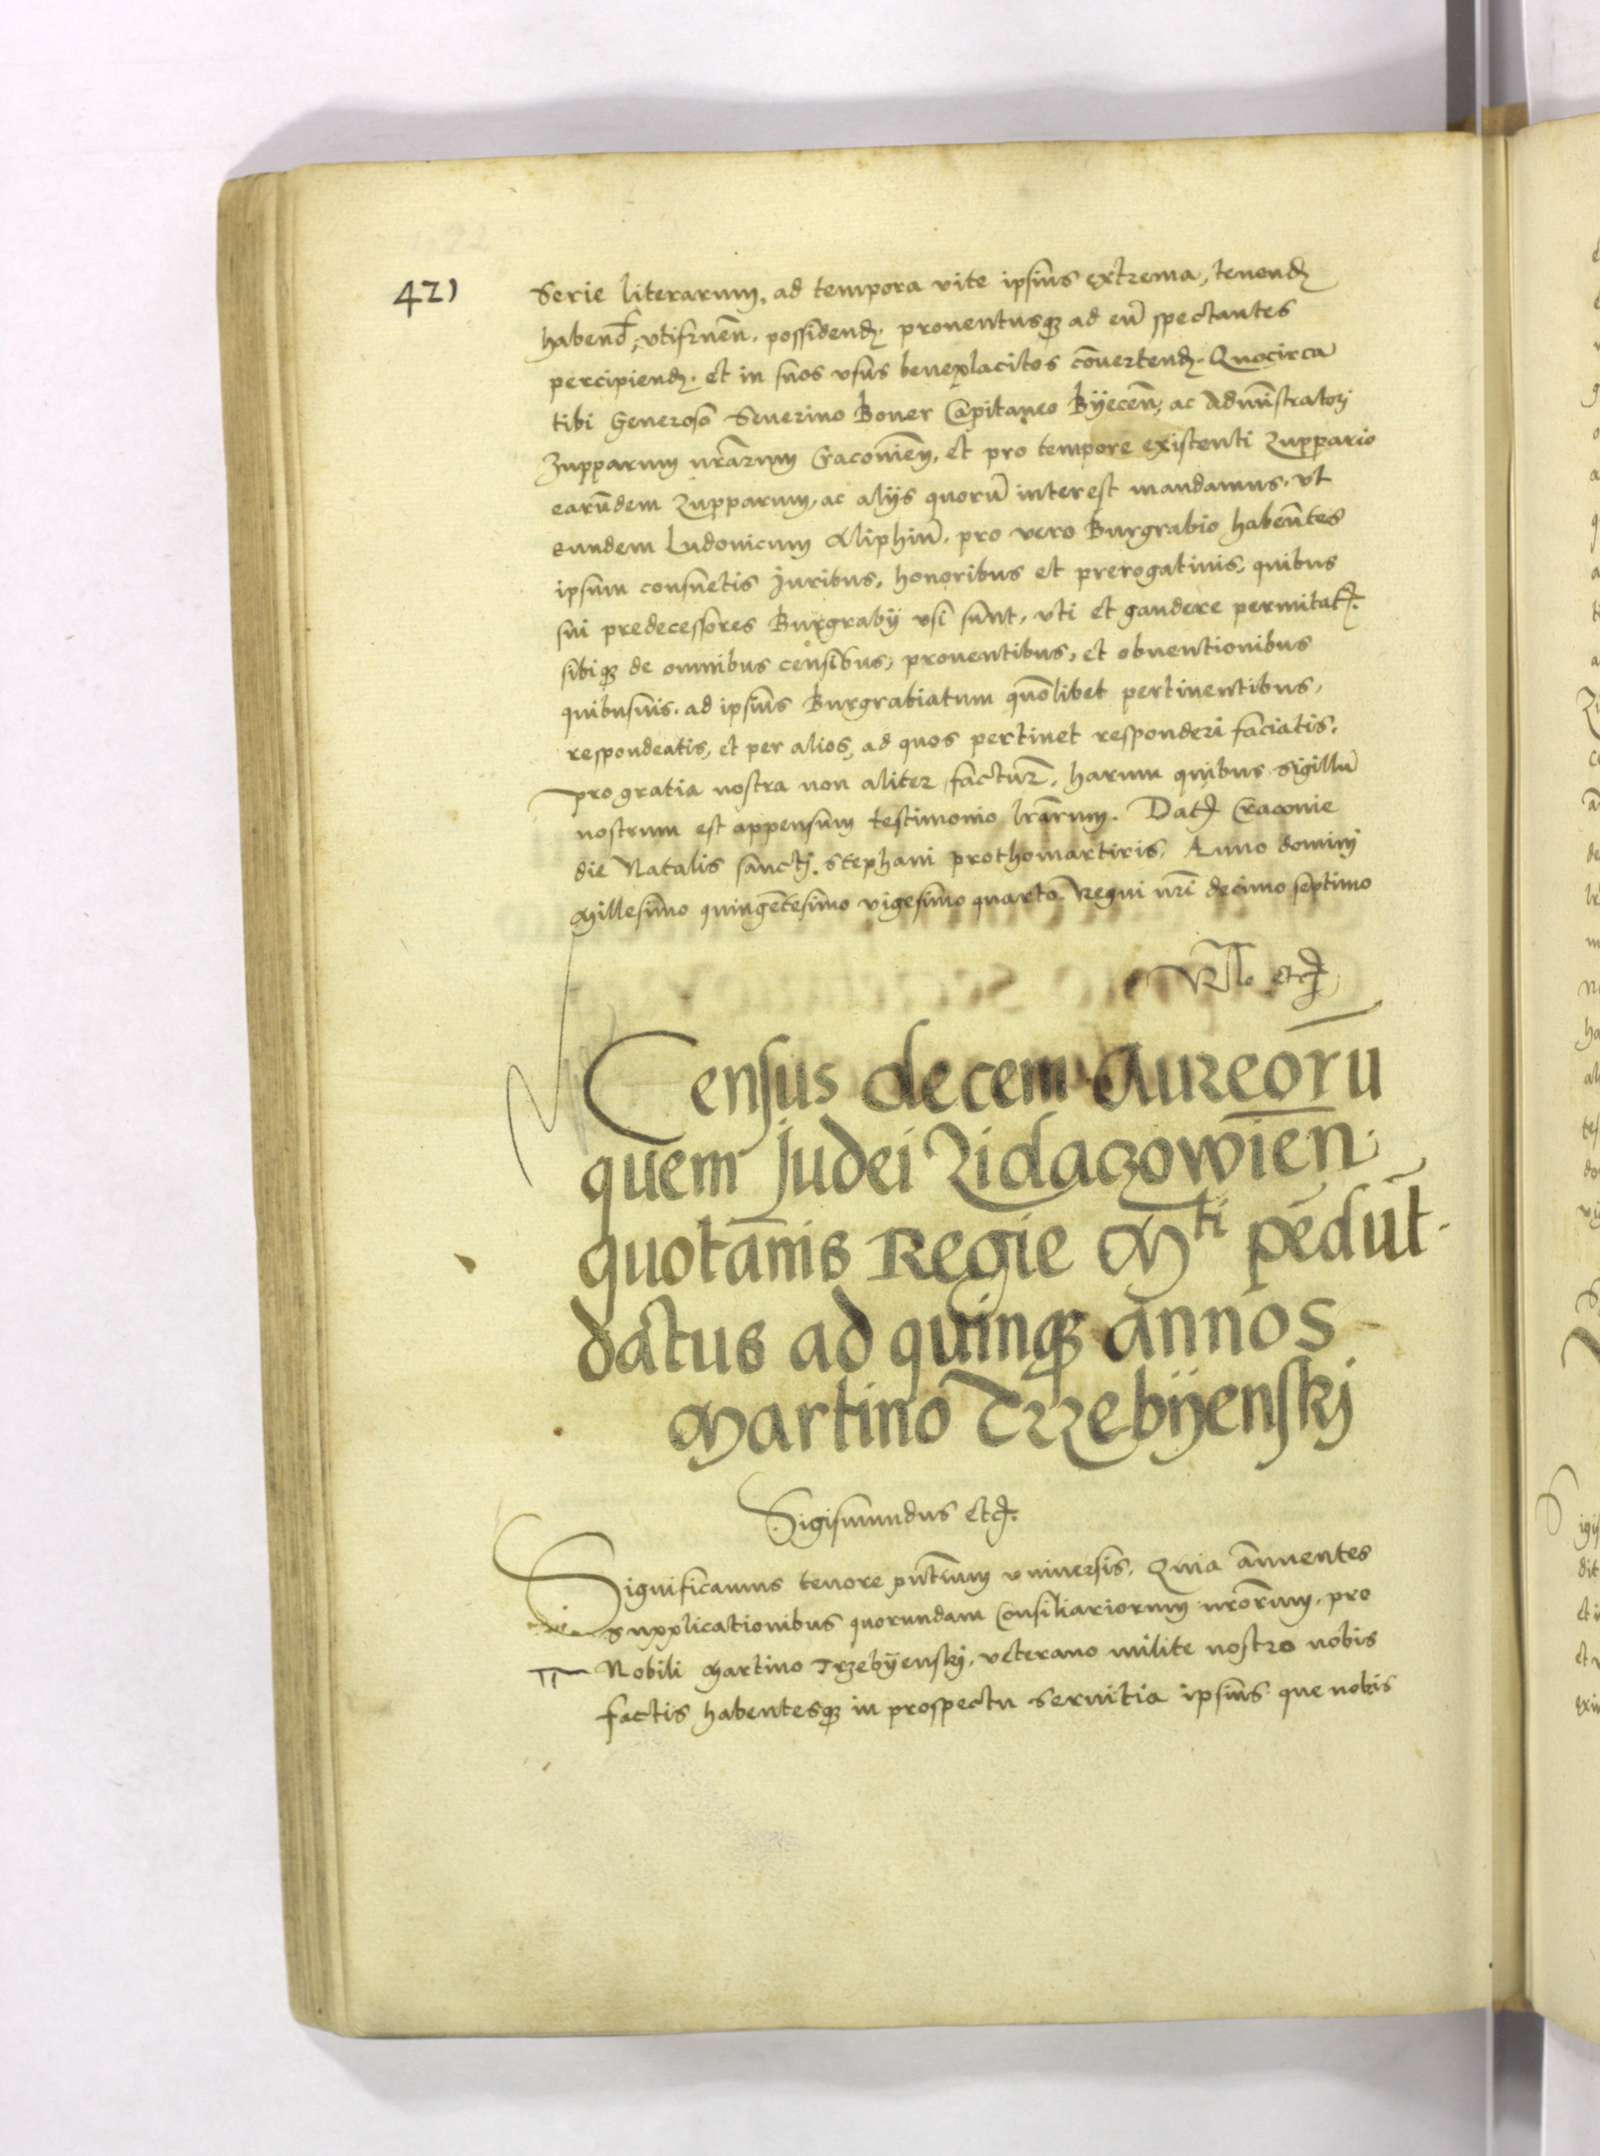 421
Serie literarum, ad tempora vite ipsius extrema, tenend
habend, utifruen, possidend, proventusq ad eu spectantes
percipiend. et in suos usus beneplacitos covertend. Quocirca
tibi Generoso Severino Boner Capitaneo Byecen, ac administratorj
Zupparum nrarum Cracovien, et pro tempore existenti Zuppario
earudem Zupparum, ac alijs quoru interest mandamus, ut
eundem Ludovicum Aliphiu, pro vero Burgrabio habentes
ipsum consuetis Juribus, honoribus et prerogativis, quibus
sui predecessores Burgrabij usi sunt, uti et gaudere permitat.
sibiq de omnibus censibus, proventibus, et obventionibus
quibusuis, ad ipsius Burgrabiatum quolibet pertinentibus,
respondeatis, et per alios, ad quos pertinet responderi faciatis,
pro gratia nostra non aliter factur. harum quibus sigillu
nostrum est appensum testimonio lrarum. Dat Cracovie
die Natalis sanctj. Stephani prothomartiris, Anno dominj
Millesimo quingetesimo vigesimo quarto Regni nri decimo septimo
Rlo etc
Census decem Aureoru
quem Judei Zidaczowien
quotanis Regie Mti pedut
datus ad quinq annos
Martino Trzebyenskj
Sigismundus etc.
Significamus tenore pntium universis. Quia annuentes
supplicationibus quorundam Consiliariorum nrorum, pro
Nobili Martino Trzebyenskj, veterano milite nostro nobis
factis habentesq in prospectu servitia ipsius que nobis